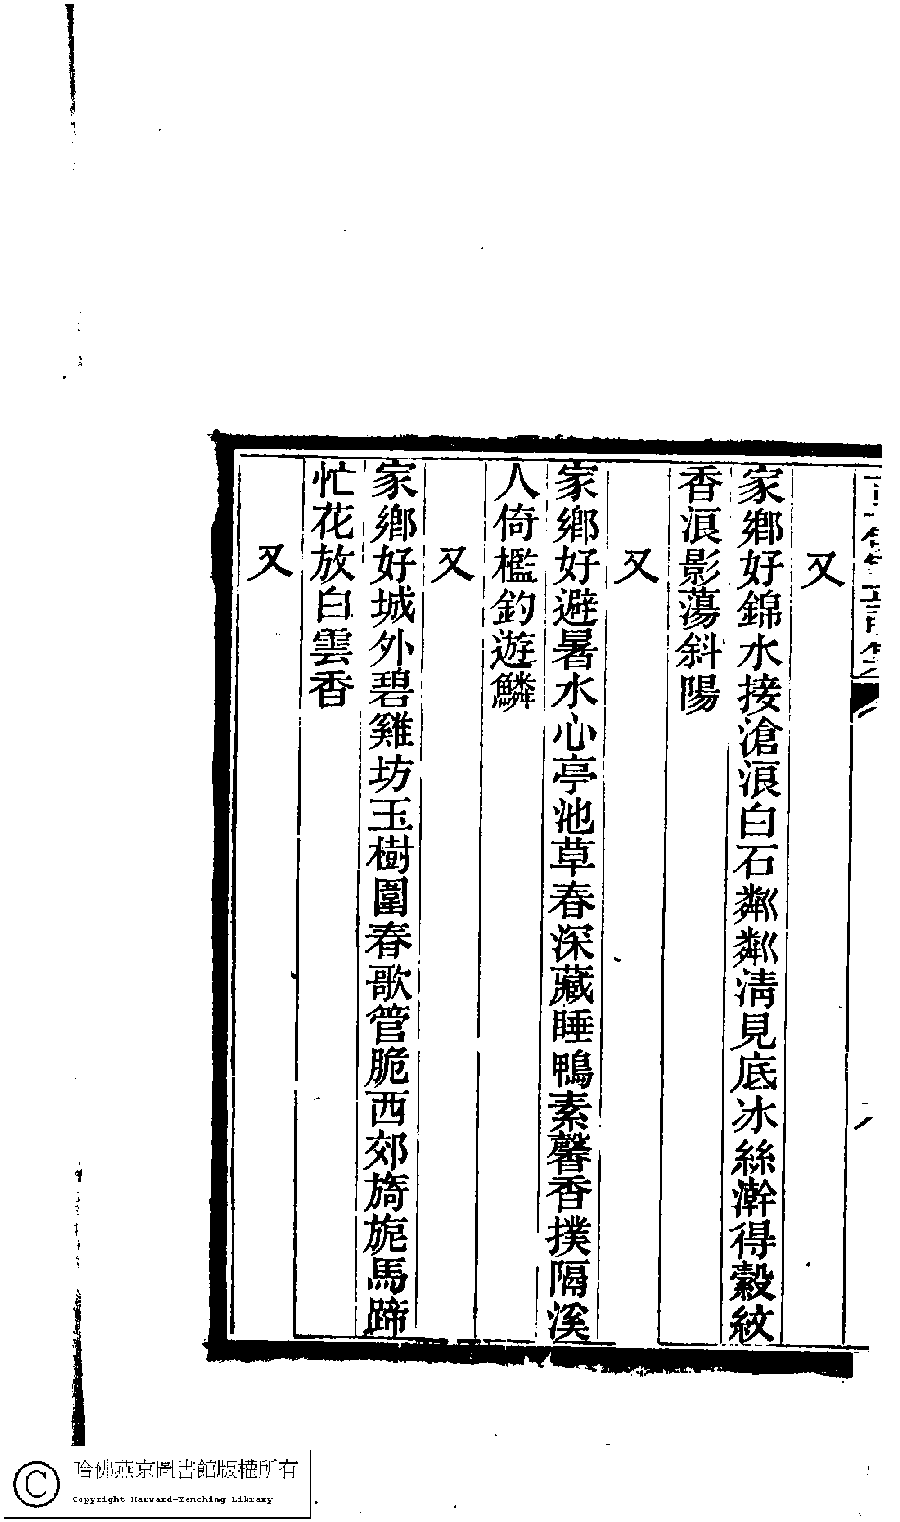 又
家鄉好錦水接滄浪白石粼粼清見底冰絲澣得縠紋
香浪影蕩斜陽
又
家鄉好避暑水心亭池草春深藏睡鴨素馨香撲隔溪
人倚檻釣遊鱗
又
家鄉好城外碧雞坊玉樹圍春歌管脆西郊旖旎馬蹄
忙花放白雲香
又
哈佛燕京圖書館版權所有
Copyright Harvard-Yenching Library